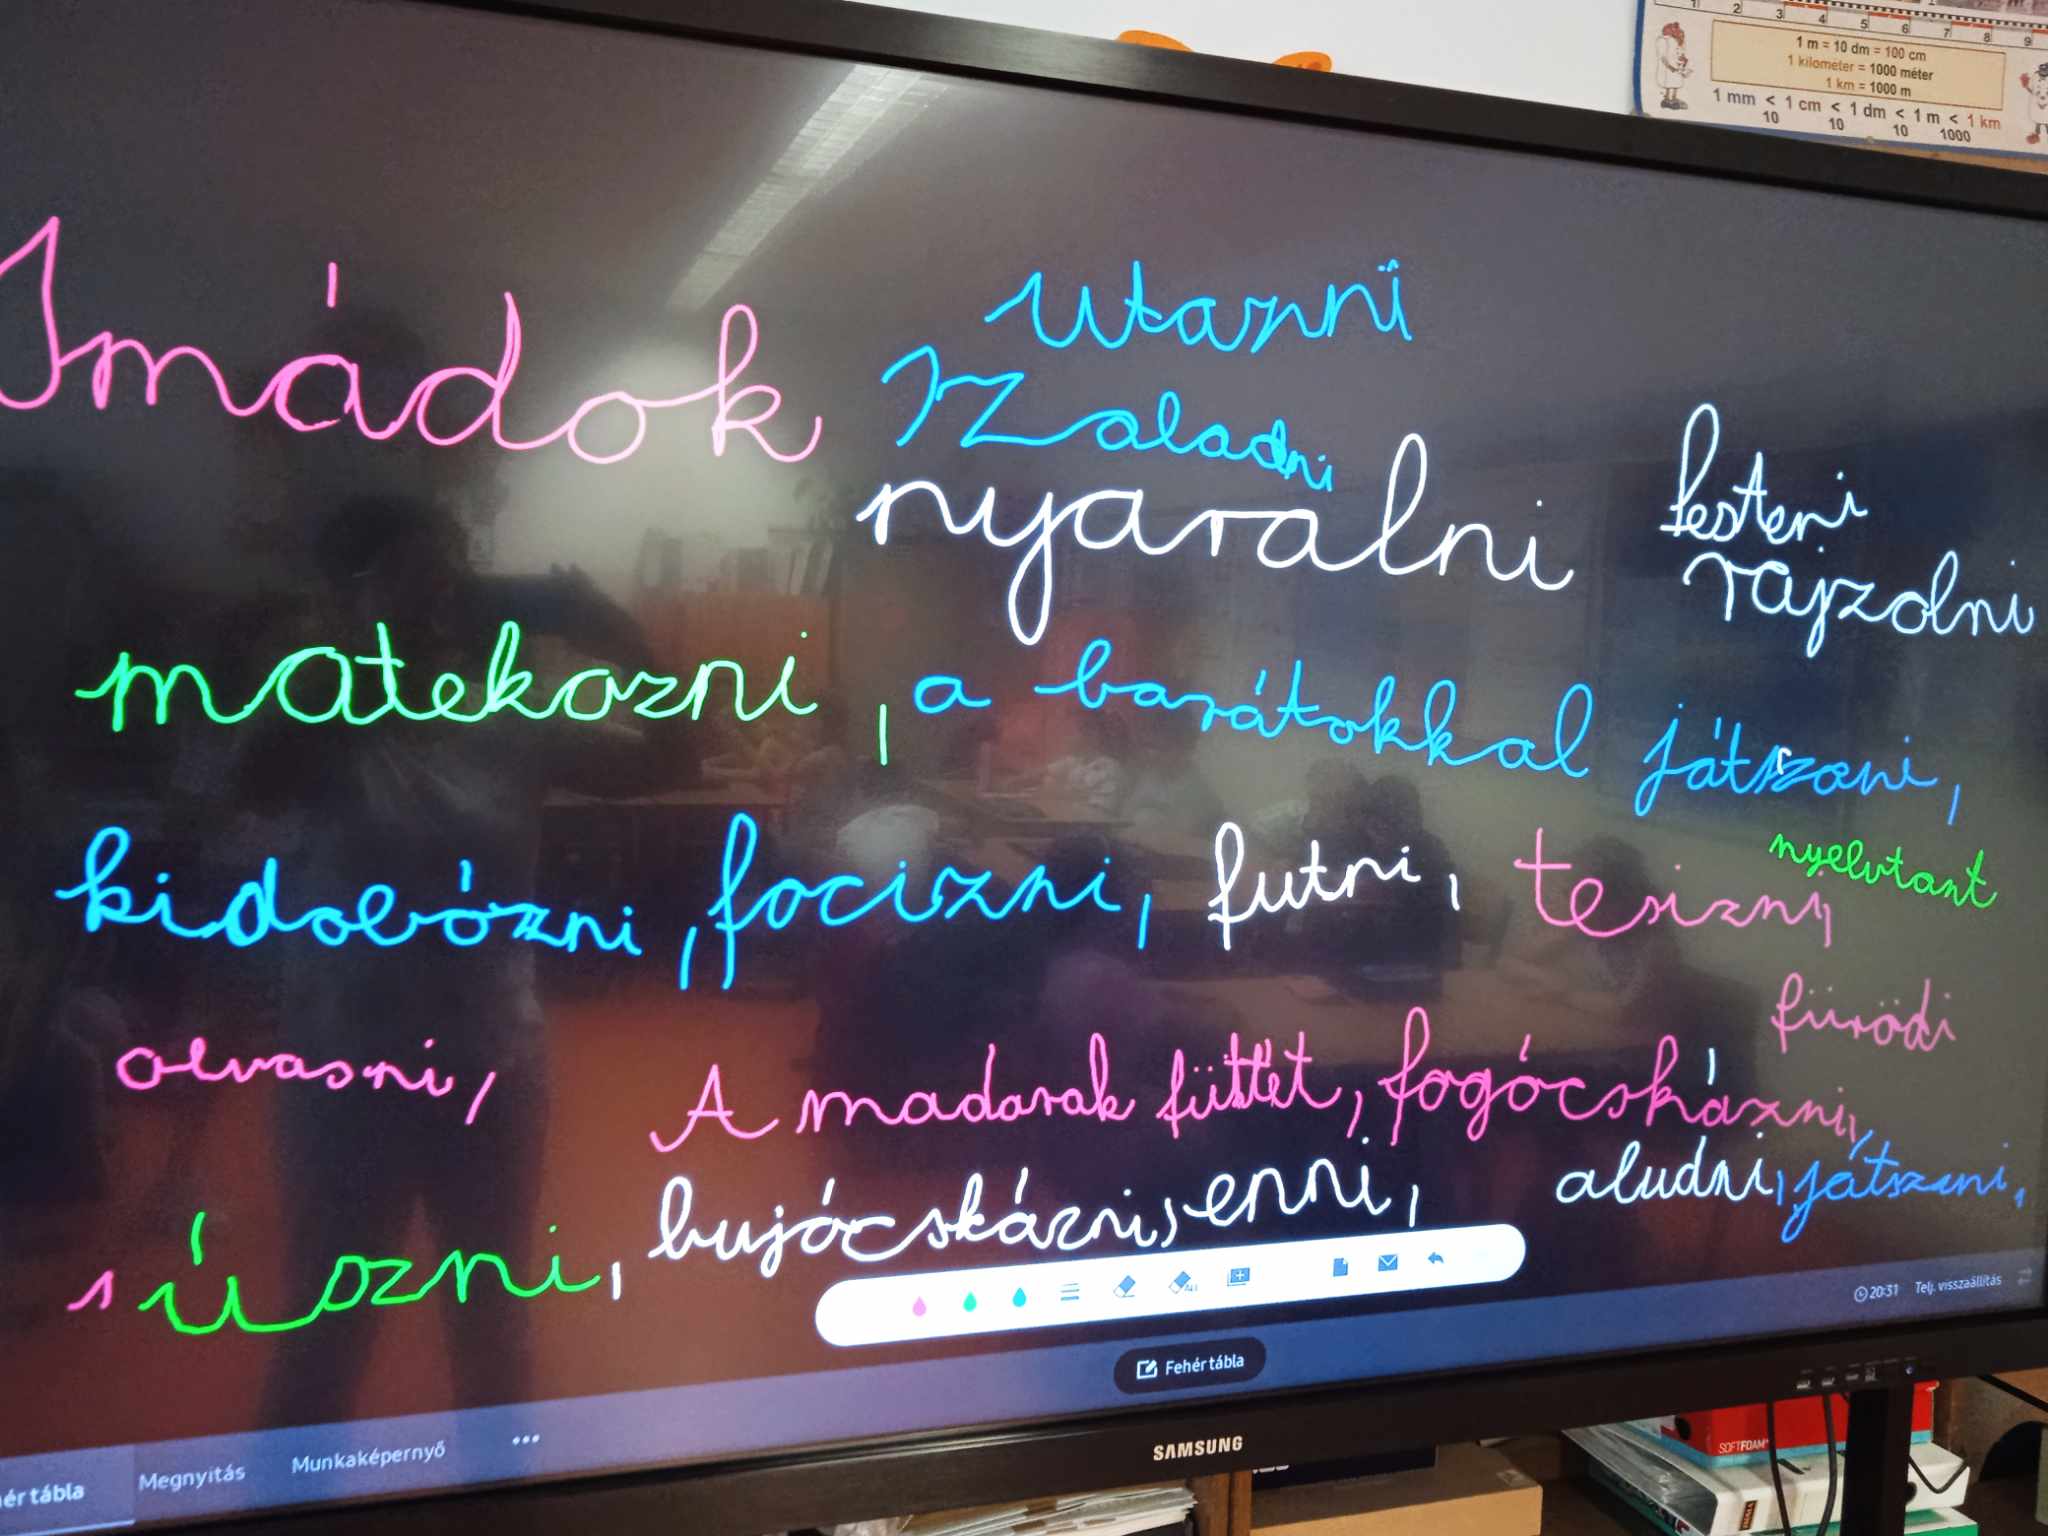 1 2 3 4 5 6 7 8 9
1 m = 10 dm = 100 cm
1 kilométer = 1000 méter
1 km = 1000 m
1 mm < 1 cm < 1 dm < 1 m < 1 km
10 10 10 1000
Imádok
utazni
szaladni
nyaralni
festeni
rajzolni
matekozni, a barátokkal játszani,
kidobózni, focizni, futni, tesizni,
nyelvtant
fürödi
olvasni, A madarak füttét, fogócskázni,
úszni, bujócskázni, enni, aludni, játszani,
20:31 Telj. visszaállítás
Fehér tábla
ér tábla Megnyitás Munkaképernyő
SAMSUNG
SOFTFOAM